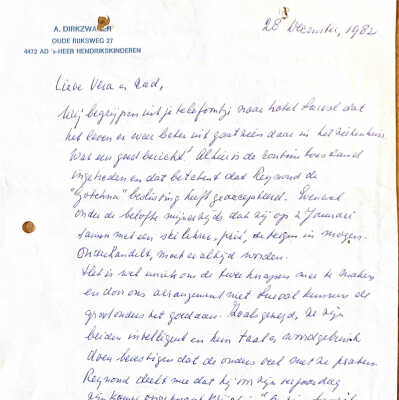 A. DIRKZWAGER
OUDE RIJKSWEG 27
4472 AD 's-HEER HENDRIKSKINDEREN
28 December, 1982
Lieve Vera en Aad,
Wij begrijpen uit je telefoontje naar hotel dat
het leven er weer beter uit gaat zien daar in het ziekenhuis.
Wat een goed bericht! Alhier is de toestand
ingetreden en dat betekent dat Reymond de
"Gotchna" heeft geaccepteerd. Evenwel
onder de belofte mijnerzijds dat wij op 2 Januari
samen met een ski lehrer, de bergen in mogen.
Onderhandelt, moet er altijd worden.
Het is wel uniek om de twee knapen mee te maken
en door ons arrangement met kunnen de
grootouders het goed aan. Zoals gezegd, ze zijn
beiden intelligent en hun taal en woordgebruik
doen bevestigen dat de ouders veel met ze praten.
Reymond deelt mee dat hij op zijn verjaardag
zijn